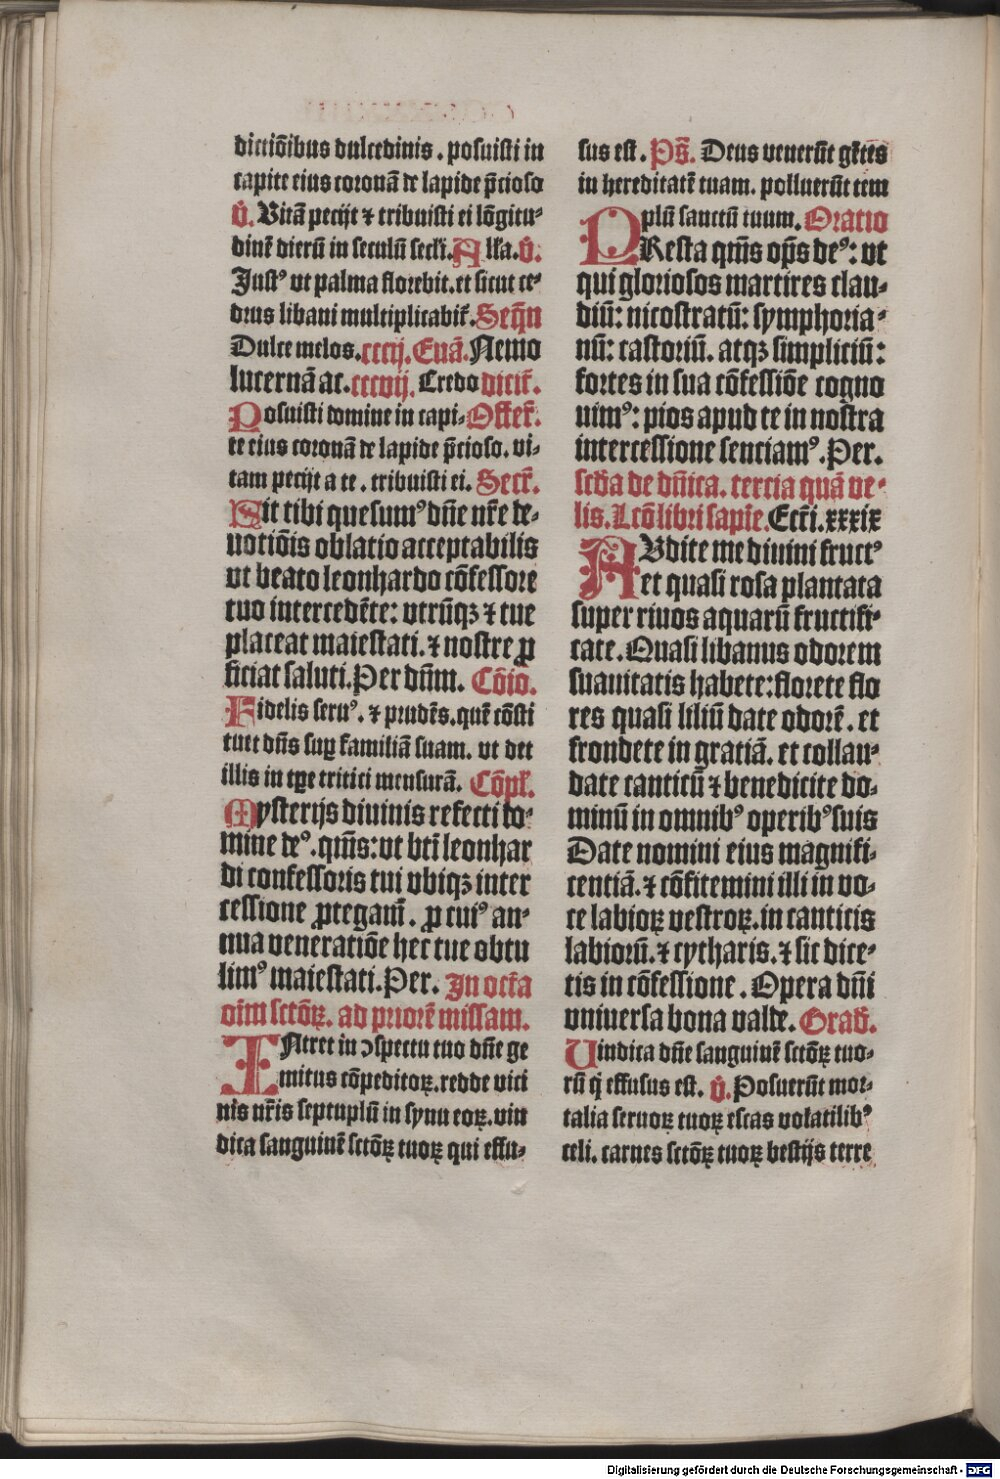 dictiōibus dulcedinis. posuisti in
capite eius coronā de lapide p̄cioso
V̄. Vitā pecijt ⁊ tribuisti ei lōgitu-
dinē dierū in seculū secl̄i. All̄a. V̄.
Iustꝰ ut palma florebit. et sicut ce-
drus libani multiplicabit̄. Seq̄n
Dulce melos. cccij. Euā. Nemo
lucernā ac. cccvij. Credo dicit̄.
Posuisti domine in capi- Offer̄.
te eius coronā de lapide p̄cioso. vi-
tam pecijt a te. tribuisti ei. Secr̄.
Sit tibi quesumꝰ dn̄e nr̄e de-
uotiōis oblatio acceptabilis
vt beato leonhardo cōfessore
tuo intercedēte: vtrūqꝫ ⁊ tue
placeat maiestati. ⁊ nostre ꝓ
ficiat saluti. Per dn̄m. Cōio.
Fidelis seruꝰ. ⁊ prudēs. quē cōsti
tuit dn̄s suꝑ familiā suam. ut det
illis in tꝑe tritici mensurā. Cōpl̄.
Mysterijs diuinis refecti do-
mine deꝰ. qm̄s: vt bt̄i leonhar
di confessoris tui vbiqꝫ inter
cessione ꝓtegam̄. ꝓ cuiꝰ an-
nua veneratiōe hec tue obtu
limꝰ maiestati. Per. In octa̅
oīm sctōꝝ. ad priorē missam.
INtret in ↄspectu tuo dn̄e ge
mitus cōpeditoꝝ. redde vici
nis nr̄is septuplū in synu eoꝝ. vin
dica sanguinē sctōꝝ tuoꝝ qui effu-
sus est. Ps̄. Deus venerūt gētes
in hereditatē tuam. polluerūt tem
plū sanctū tuum. Oratio
PResta qm̄s op̄s deꝰ: vt
qui gloriosos martires clau-
diū: nicostratū: symphoria-
nū: castoriū. atqꝫ simpliciū:
fortes in sua cōfessiōe cogno
uimꝰ: pios apud te in nostra
intercessione senciamꝰ. Per.
scd̄a de dn̄ica. tercia quā ve-
lis. Lcō libri sapīe. Ecc̄i. xxxix
AVdite me diuini fructꝰ
et quasi rosa plantata
super riuos aquarū fructifi-
cate. Quasi libanus odorem
suauitatis habete: florete flo
res quasi liliū date odorē. et
frondete in gratiā. et collau-
date canticū ⁊ benedicite do-
minū in omnibꝰ operibꝰ suis
Date nomini eius magnifi-
centiā. ⁊ cōfitemini illi in vo-
ce labioꝝ vestroꝝ. in canticis
labiorū. ⁊ cytharis. ⁊ sic dice-
tis in cōfessione. Opera dn̄i
vniuersa bona valde. Grad̄.
Vindica dn̄e sanguinē sctōꝝ tuo-
rū q̇ effusus est. V̄. Posuerūt mor-
talia seruoꝝ tuoꝝ escas volatilibꝰ
celi. carnes sctōꝝ tuoꝝ bestijs terre
Digitalisierung gefördert durch die Deutsche Forschungsgemeinschaft - DFG